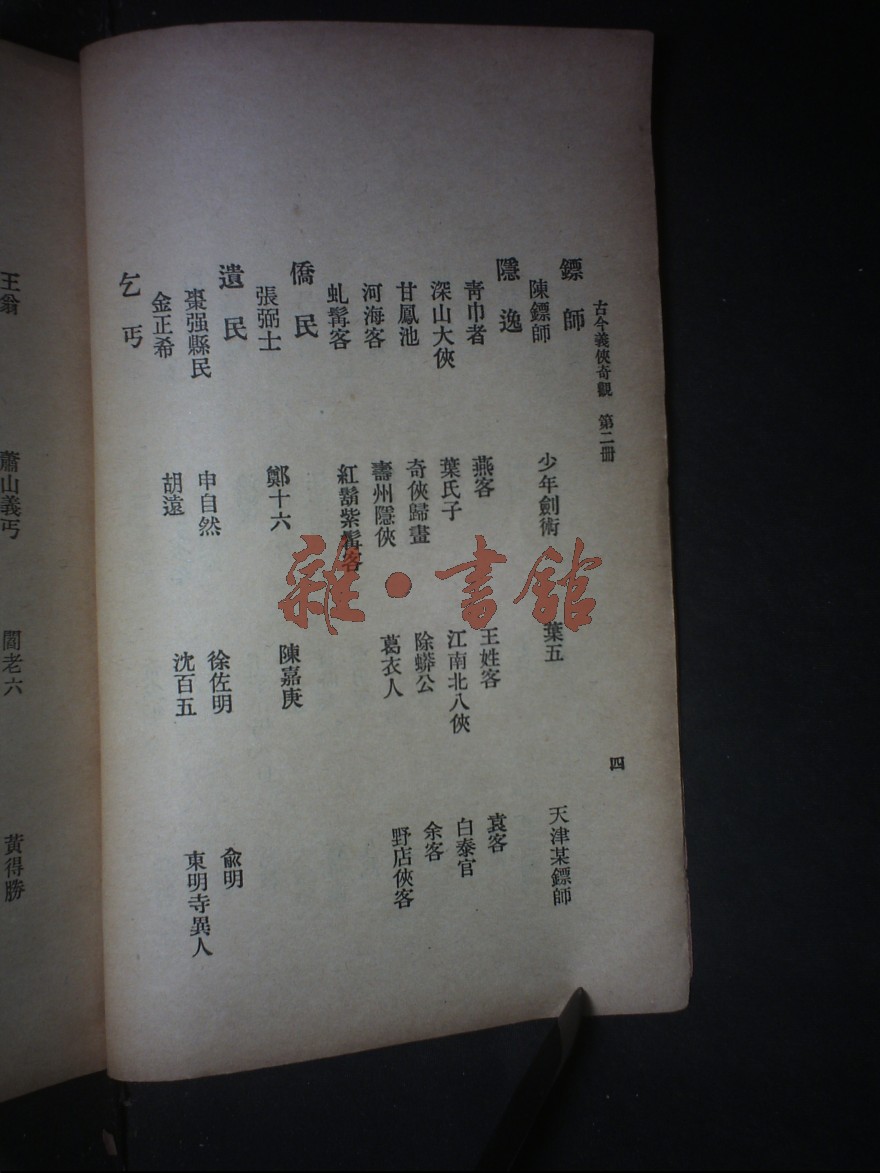 古今義俠奇觀　第二冊　四
鏢師
陳鏢師　少年劍術　葉五　天津某鏢師
隱逸
靑巾者　燕客　王姓客　袁客
深山大俠　葉氏子　江南北八俠　白泰官
甘鳳池　奇俠歸畫　除蟒公　余客
河海客　壽州隱俠　葛衣人　野店俠客
虬髯客　紅鬍紫髯客
僑民
張弼士　鄭十六　陳嘉庚
遺民
棗强縣民　申自然　徐佐明　兪明
金正希　胡遠　沈百五　東明寺異人
乞丐
王翁　蕭山義丐　閻老六　黃得勝
雜·書館